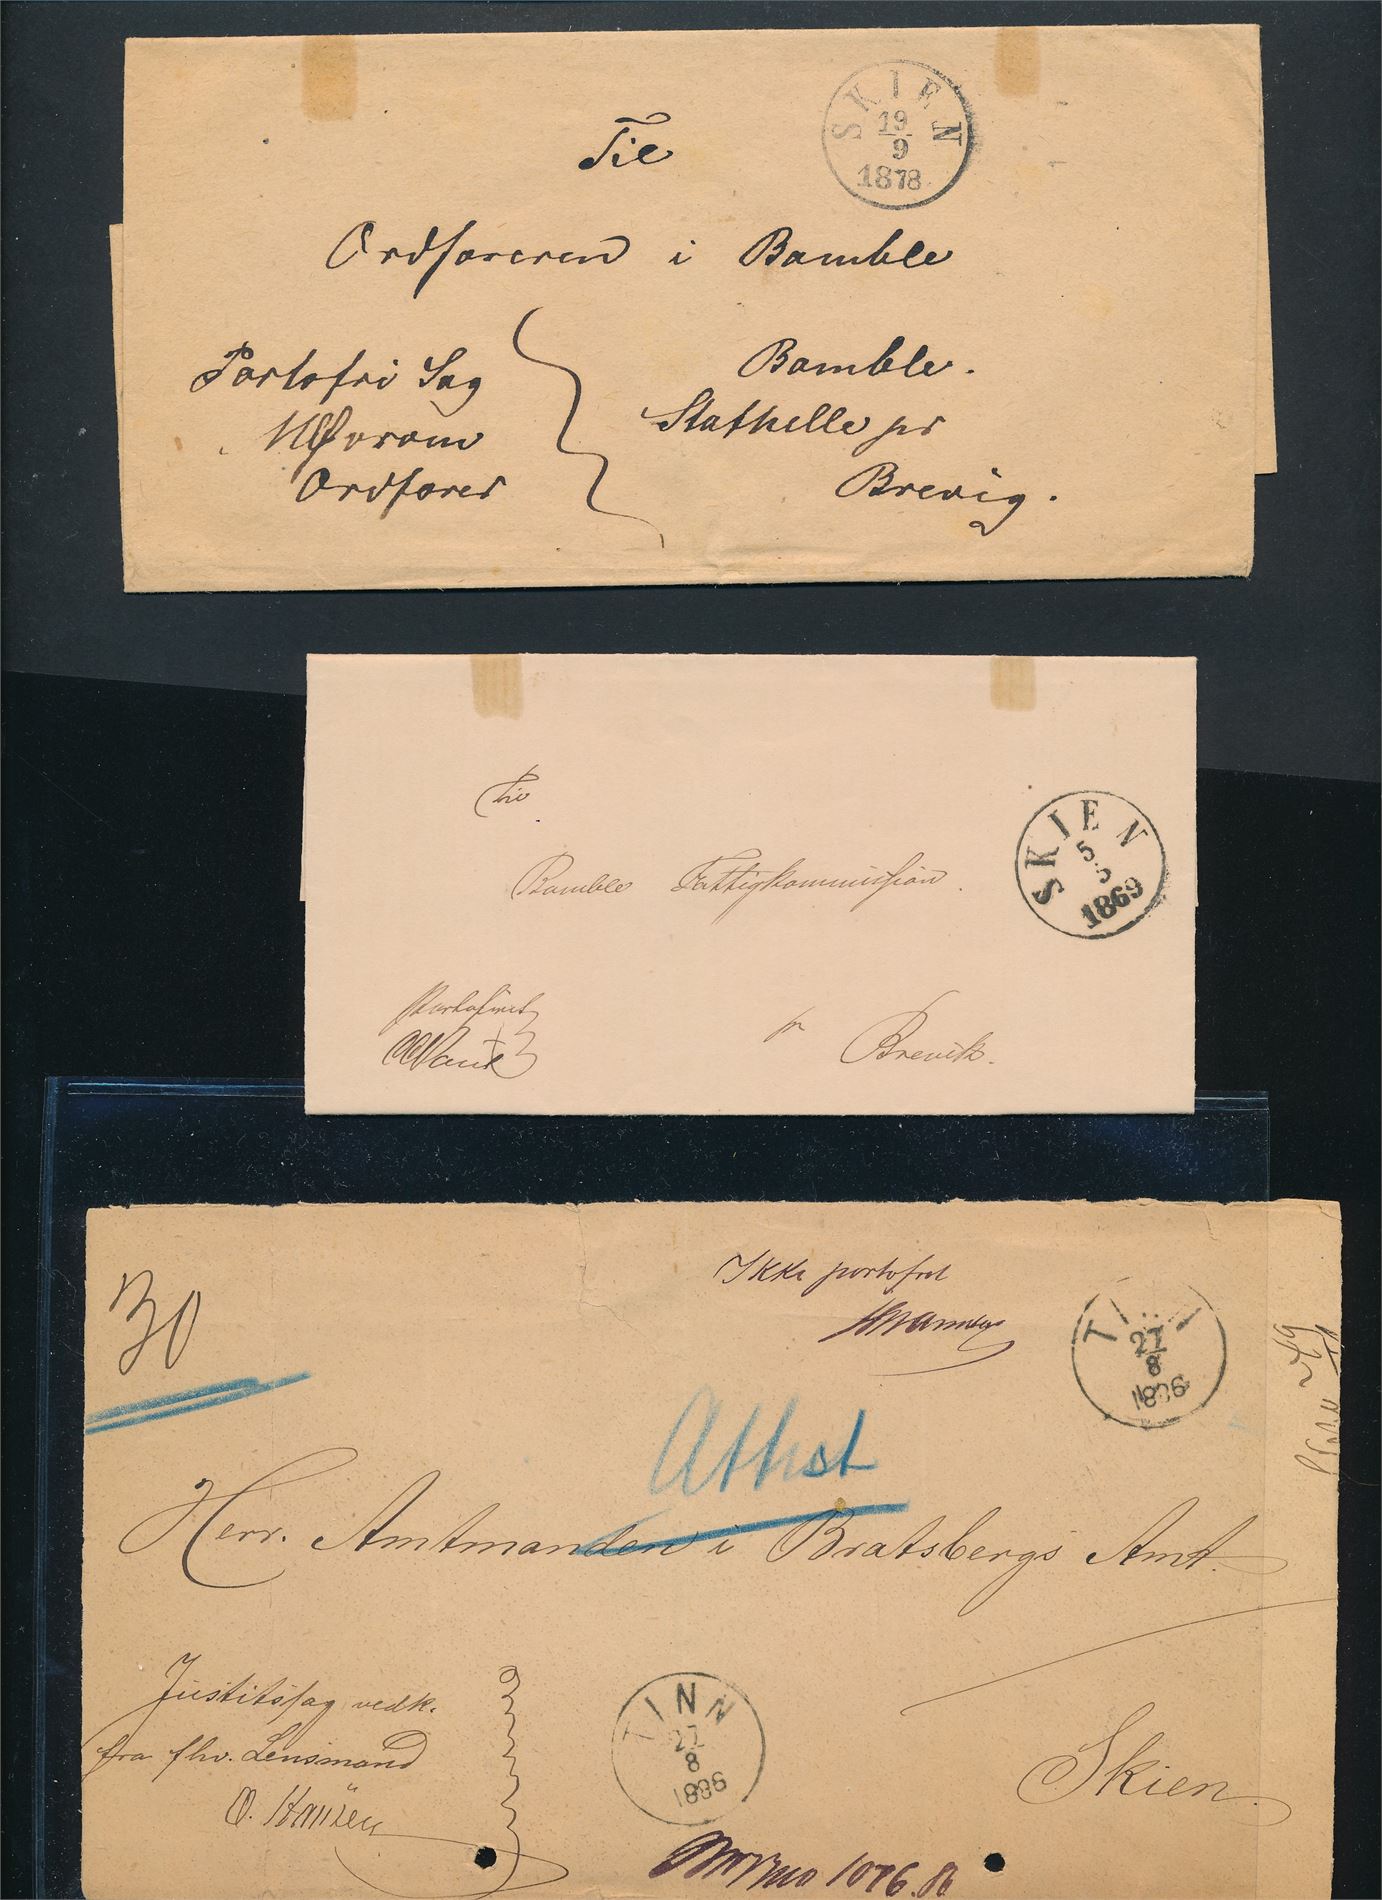 Til
SKIEN
19
9
1878
Ordføreren i Bamble
Portofri Sag
Ordfører
Bamble.
Stathelle pr
Brevig.
Til
Bamble Fattigkommission.
SKIEN
5
5
1869
Portofrit
pr Brevik.
30
Ikke portofrit
27
8
1886
Athst
Herr. Amtmanden i Bratsbergs Amt.
Justitssag vedk.
fra fhv. Lensmand
O. Hansen
TINN
27
8
1886
Skien.
1076.86